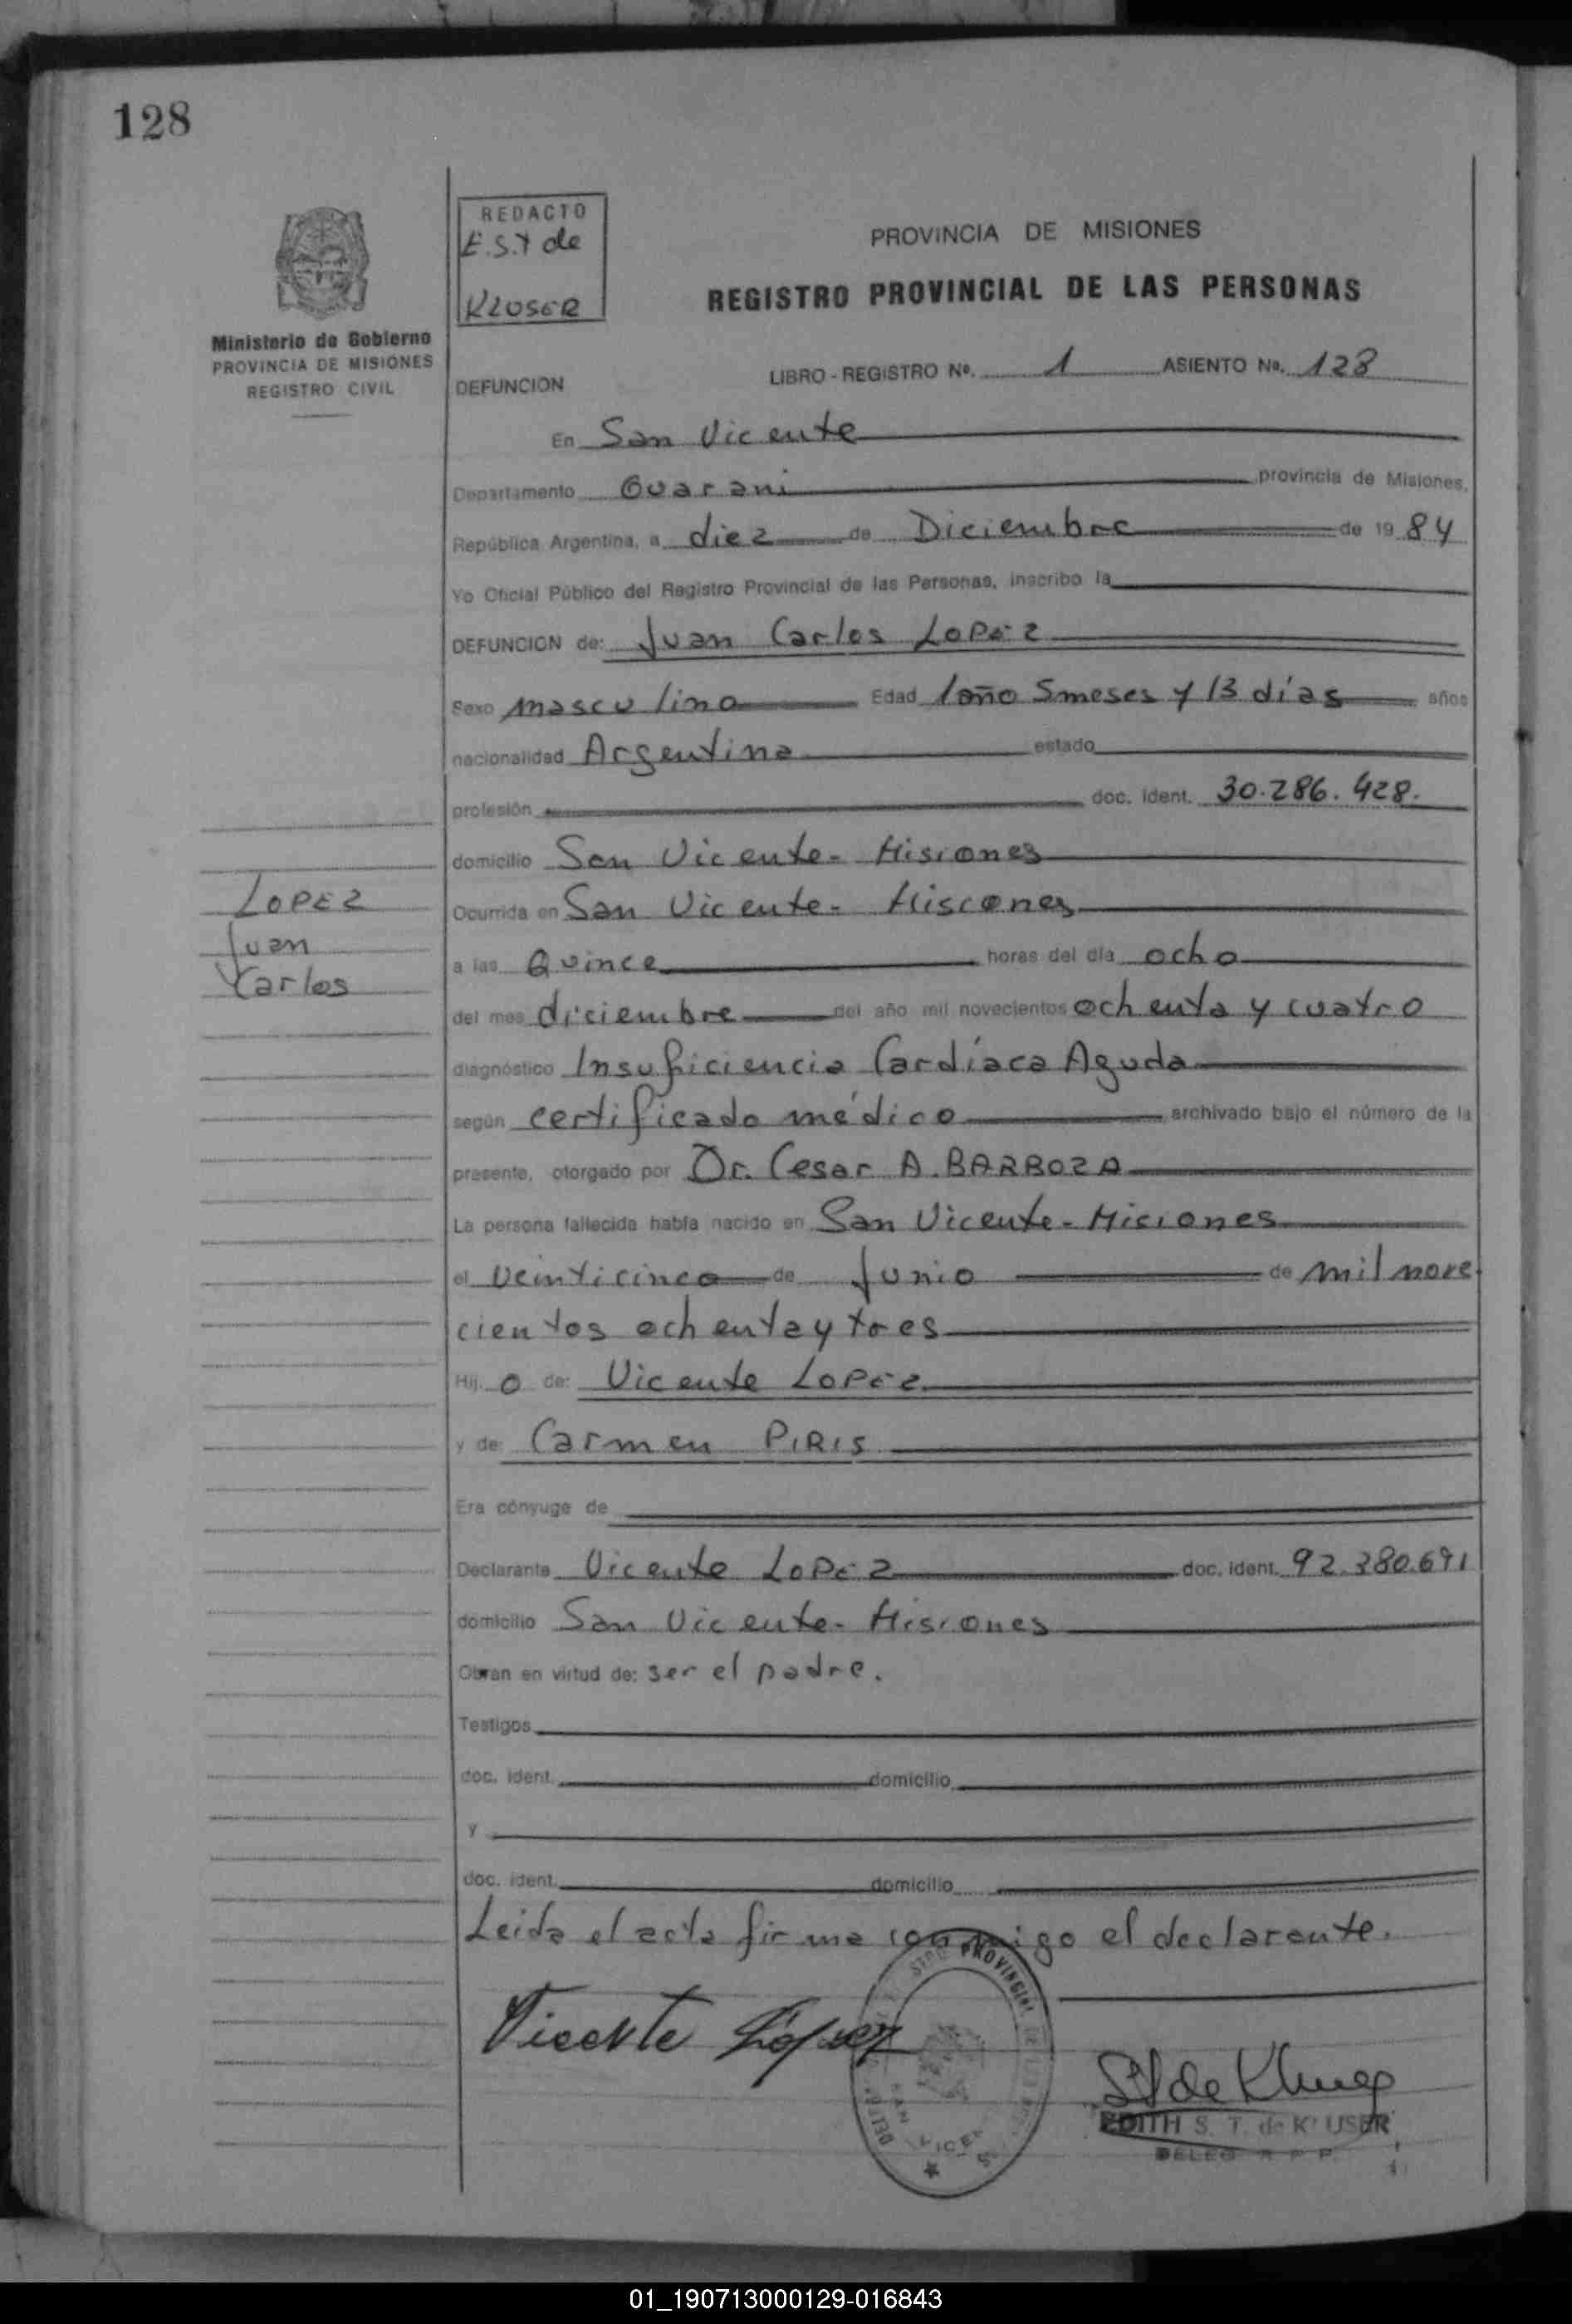 128
REDACTO
E.S.T de
KLUSER
PROVINCIA DE MISIONES
REGISTRO PROVINCIAL DE LAS PERSONAS
Ministerio de Gobierno
PROVINCIA DE MISIONES
REGISTRO CIVIL
DEFUNCION
LIBRO - REGISTRO Nº. 1 ASIENTO No. 128
En San Vicente
Departamento Guarani provincia de Misiones,
República Argentina, a diez de Diciembre de 19 84
Yo Oficial Público del Registro Provincial de las Personas, inscribo la
DEFUNCION de: Juan Carlos LOPEZ
Sexo masculino Edad 1año 5meses y 13 días años
nacionalidad Argentina estado
profesión doc. ident. 30.286.428.
domicilio San Vicente - Misiones
Ocurrida en San Vicente - Misiones
a las Quince horas del día ocho
del mes diciembre del año mil novecientos ochenta y cuatro
diagnóstico Insuficiencia Cardíaca Aguda
según certificado médico archivado bajo el número de la
presente, otorgado por Dr. Cesar A. BARBOZA
La persona fallecida había nacido en San Vicente - Misiones
el veinticinco de Junio de mil nove
cientos ochenta y tres
Hij o de: Vicente LOPEZ
y de Carmen PIRIS
Era cónyuge de
Declarante Vicente LOPEZ doc. ident. 92.380.691
domicilio San Vicente - Misiones
Obran en virtud de: ser el padre.
Testigos
doc. ident. domicilio
y
doc. ident. domicilio
Leida el acta firma conmigo el declarante.
LOPEZ
Juan
Carlos
Vicente López
PROVINCIAL DE LAS
SAN VICENTE
EDITH S. T. de KLUSER
DELEG R P P
01_190713000129-016843